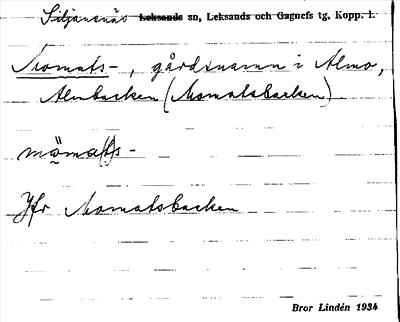 Siljansnäs Leksands sn, Leksands och Gagnefs tg, Kopp. l.
Momats-, gårdsnamn i Almo,
Almbacken (Momatsbacken)
möma(t)s-
Jfr Momatsbacken
Bror Lindén 1934